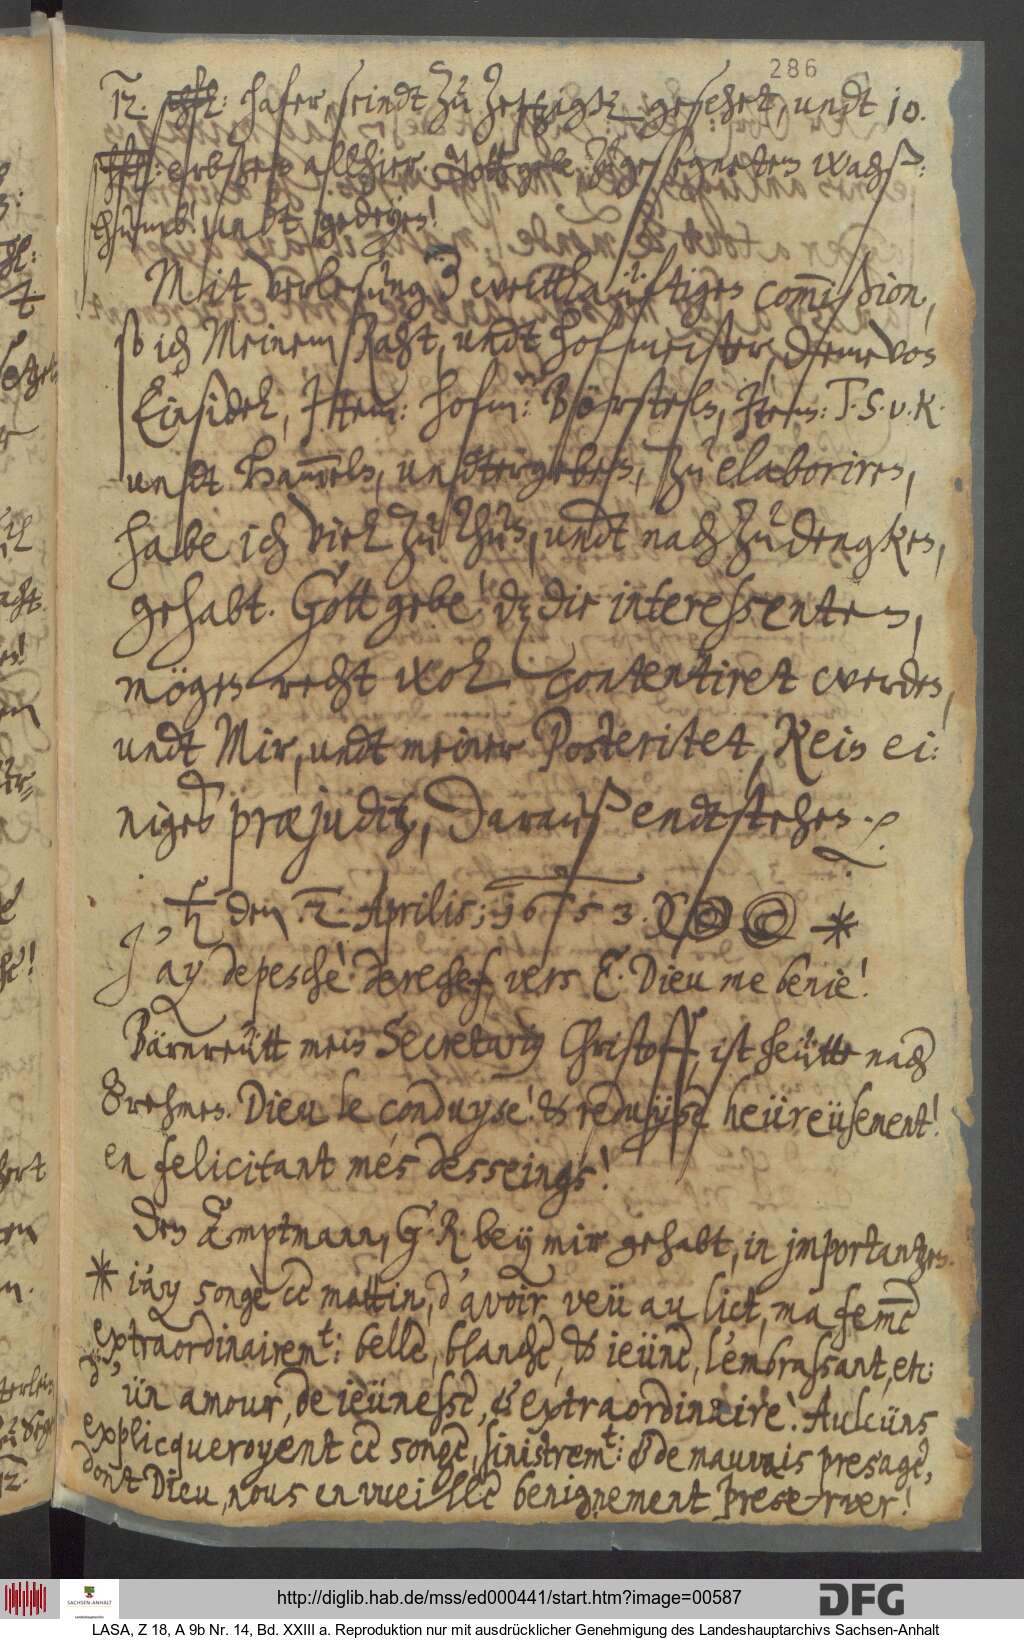 286
12. {schfl}: hafer, seindt zu Zeptzigk gesehet, undt 10.
{schfl}: erbsen allhier. Gott gebe! zu gesegneten wachs:
thumb! undt gedeyen!
Mit verlesung, der weittläüftigen commission,
so ich Meinem Raht, undt hofmeister, dieme von
Einsidel, Jtem: hofm: Börstels, Jtem: T. S. v. K.
undt Hanniels, undtergeben, zu elaboriren,
habe ich viel zu thun, undt nach zu dengken,
gehabt. Gott gebe! dz die interessenten,
mögen recht wol contentiret werden,
undt Mir, undt meiner Posteritet, Kein ei:
niges præjuditz, darauß endtstehen.
♄ den 2. Aprilis; 1653. *
J'ay depeschè derechef, vers E. Dieu me benie!
Bärnreütt mein Secretarius Christoff, ist heütte nach
Brehmen. Dieu le conduyse! & reduyse heüreüsement!
en felicitant mes desseings!
Den Amptmann, G. R. bey mir gehabt, in importantzen.
* i'ay songè ce mattin, d'avoir veü au lict, ma femme
extraordinairemt: belle, blanche, & ieüne, l'embrassant, etc:
d'ün amour, de ieünesse, & extraordinaire! Aulcüns
explicqueroyent ce songe, sinistremt: & de mauvais presage,
dont Dieu, nous en vueille benignement preserver!
http://diglib.hab.de/mss/ed000441/start.htm?image=00587
SACHSEN-ANHALT
DFG
LASA, Z 18, A 9b Nr. 14, Bd. XXIII a. Reproduktion nur mit ausdrücklicher Genehmigung des Landeshauptarchivs Sachsen-Anhalt